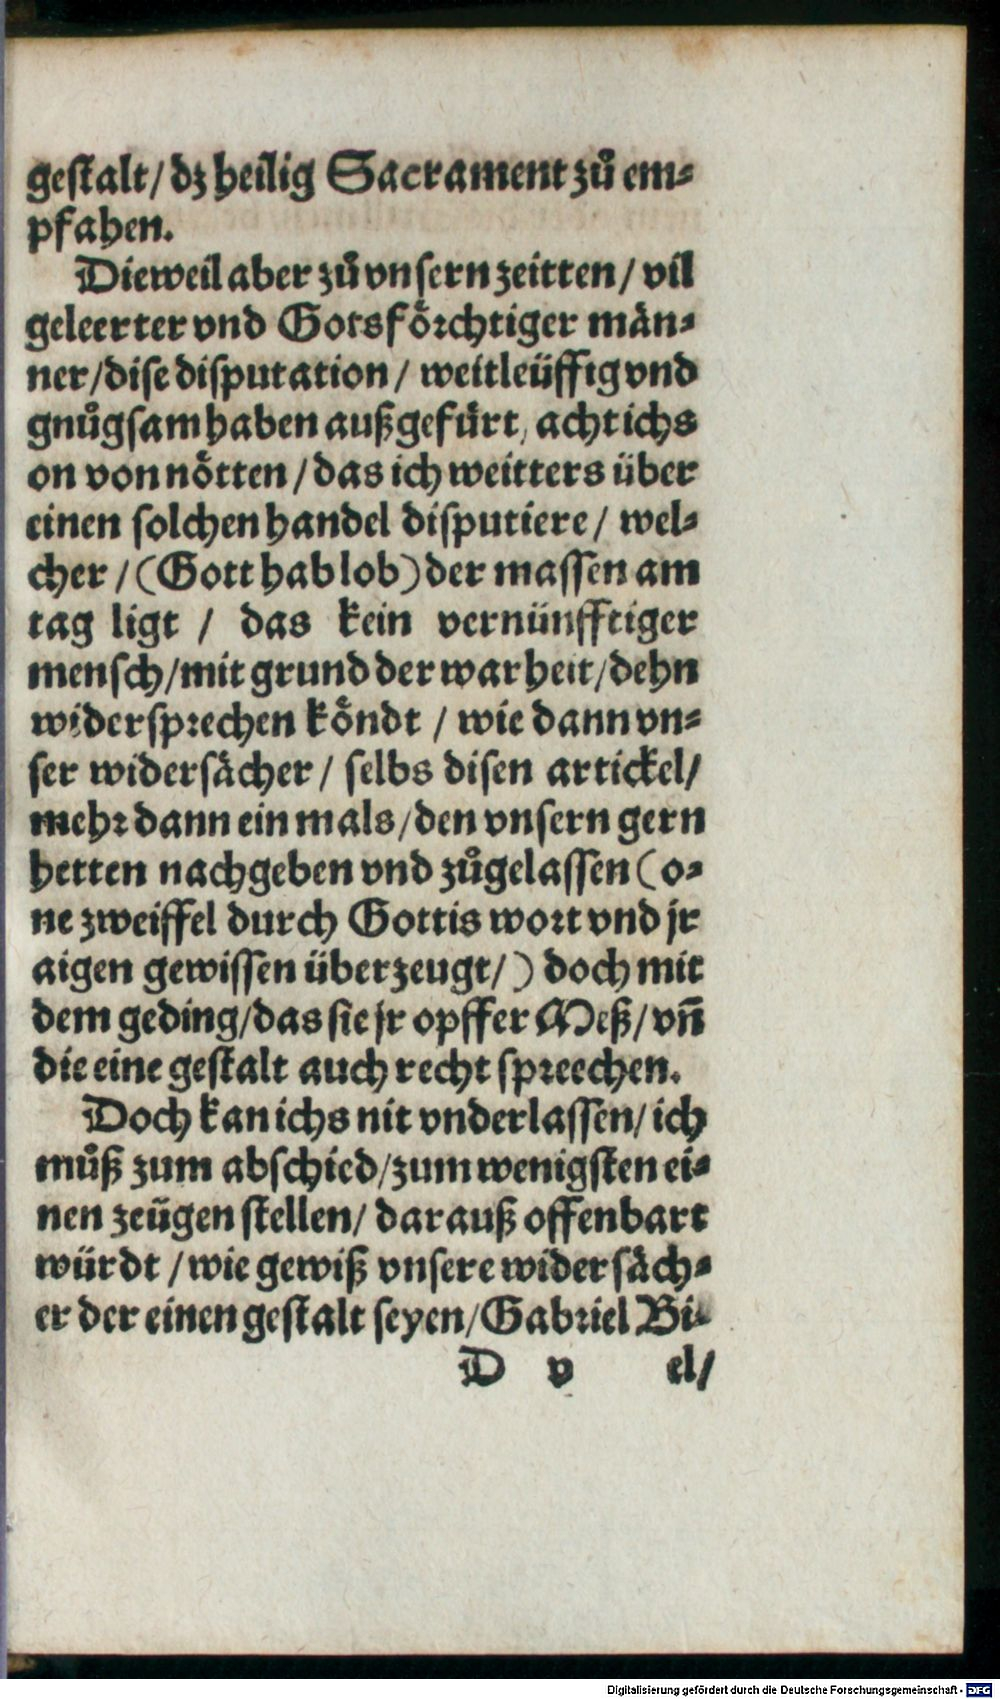 gestalt/ dz heilig Sacrament zů em⸗
pfahen.
Dieweil aber zů vnsern zeitten/ vil
geleerter vnd Gotsförchtiger män⸗
ner/dise disputation/ weitleüffig vnd
gnůgsam haben außgefürt, acht ichs
on von nötten/das ich weitters über
einen solchen handel disputiere/ wel⸗
cher/(Gott hab lob) der massen am
tag ligt / das kein vernünfftiger
mensch/mit grund der warheit/dehn
widersprechen köndt / wie dann vn⸗
ser widersächer/ selbs disen artickel/
mehr dann ein mals/den vnsern gern
hetten nachgeben vnd zůgelassen (o⸗
ne zweiffel durch Gottis wort vnd jr
aigen gewissen überzeugt/) doch mit
dem geding/das sie jr opffer Meß/ vñ
die eine gestalt auch recht spreechen.
Doch kan ichs nit vnderlassen/ ich
můß zum abschied/zum wenigsten ei⸗
nen zeügen stellen/ darauß offenbart
würdt /wie gewiß vnsere widersäch⸗
er der einen gestalt seyen/Gabriel Bi⸗
D v el/
Digitalisierung gefördert durch die Deutsche Forschungsgemeinschaft - DFG